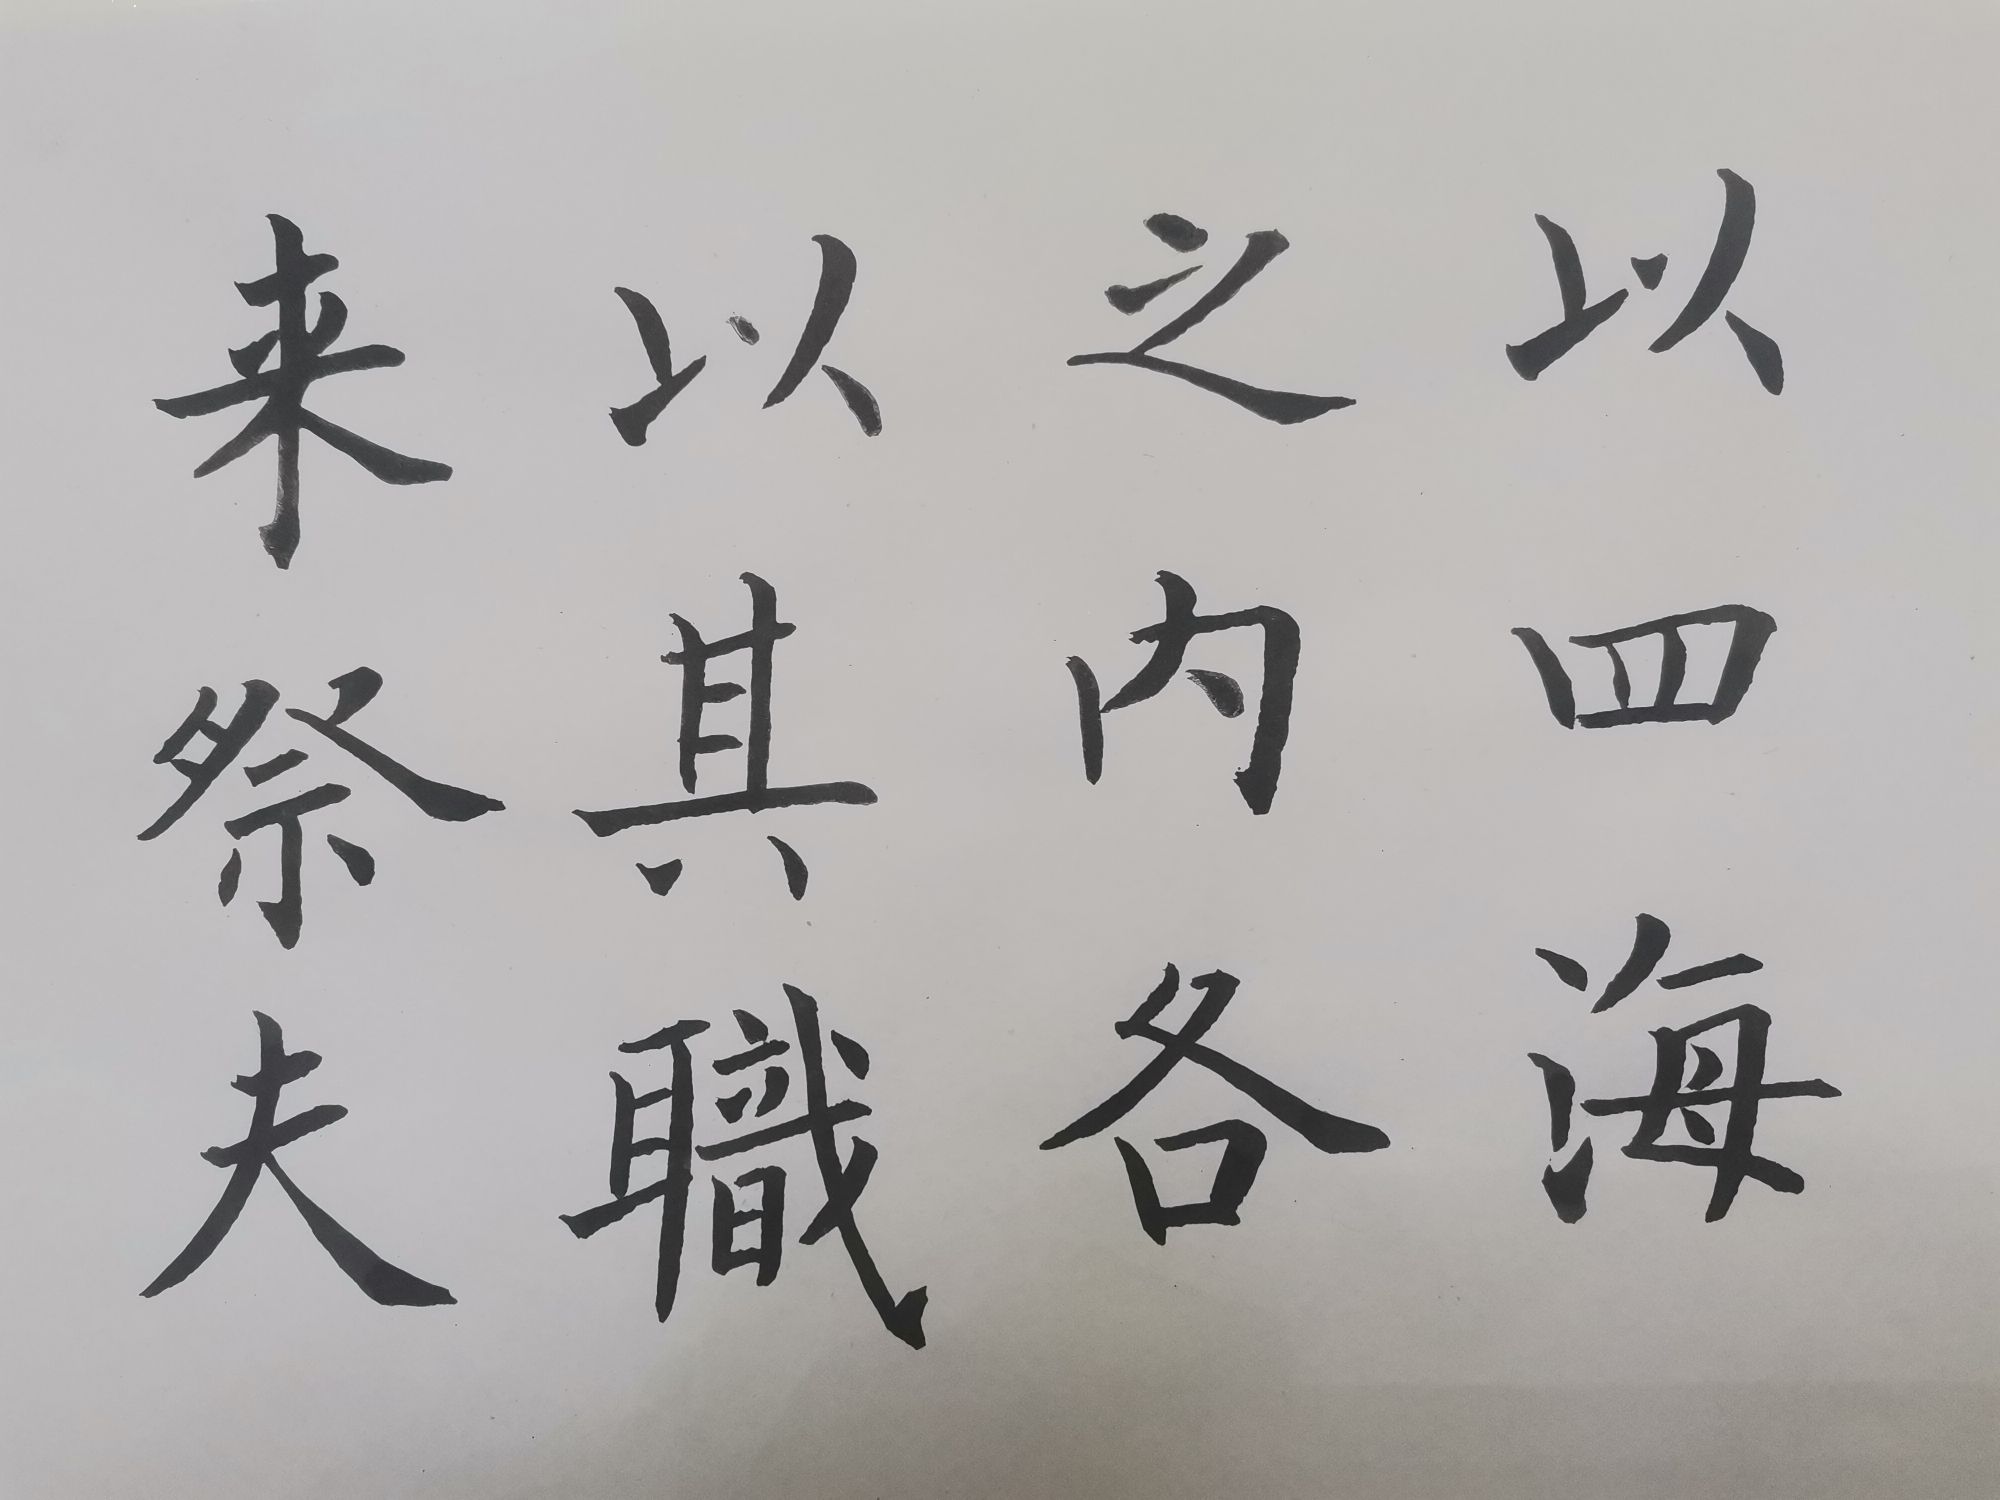 以四海
之内各
以其職
来祭夫